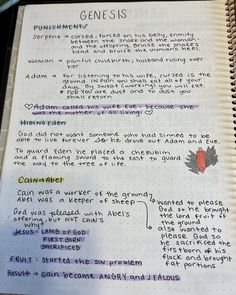 GENESIS
PUNISHMENTS
Serpent → cursed, forced on his belly, enmity
between the snake and the woman
and the offspring bruise the snake's
head and bruise the womans heel
Woman → painful childbirth, husband ruling over
her
Adam → for listening to his wife, cursed is the
ground. In pain you shall eat all of your
days. By sweat (working) you will eat.
for you are dust and to dust you
shall return
♡ Adam called his wife Eve because she
was the mother of all living ♡
Hidden Eden
God did not want someone who had sinned to be
able to live forever so he drove out Adam and Eve.
To guard Eden he placed a cherubim
and a flaming sword to the east to guard
the way to the tree of life.
Cain + Abel
Cain was a worker of the ground
Abel was a keeper of sheep
God was pleased with Abel's
offering, but NOT CAIN'S
why?
Jesus: LAMB OF GOD
FIRST BORN
SACRIFICED
FRUIT: started the sin problem
Result → cain became ANGRY and JEALOUS
wanted to please
God so he brought
the Lord fruit of
the ground
also wanted to
please God so he
sacrificed the
first born of
his flock and
brought fat portions